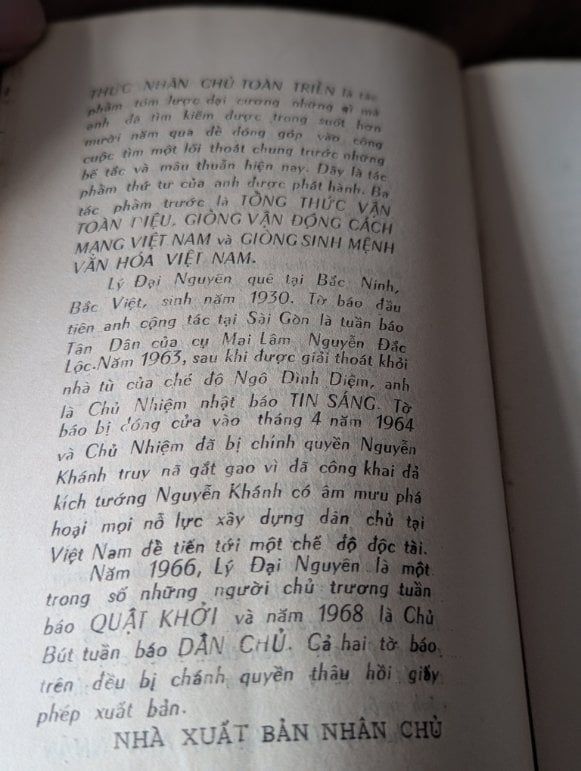 THỨC NHÂN CHỦ TOÀN TRIỂN là tác
phẩm tóm lược đại cương những gì mà
anh đã tìm kiếm được trong suốt hơn
mười năm qua để đóng góp vào công
cuộc tìm một lối thoát chung trước những
bế tắc và mâu thuẫn hiện nay. Đây là tác
phẩm thứ tư của anh được phát hành. Ba
tác phẩm trước là TỔNG THỨC VẬN
TOÀN DIỆU, GIÒNG VẬN ĐỘNG CÁCH
MẠNG VIỆT NAM và GIÒNG SINH MỆNH
VĂN HÓA VIỆT NAM.
Lý Đại Nguyên quê tại Bắc Ninh,
Bắc Việt, sinh năm 1930. Tờ báo đầu
tiên anh cộng tác tại Sài Gòn là tuần báo
Tân Dân của cụ Mai Lâm Nguyễn Đắc
Lộc.Năm 1963, sau khi được giải thoát khỏi
nhà tù của chế độ Ngô Đình Diệm, anh
là Chủ Nhiệm nhật báo TIN SÁNG. Tờ
báo bị đóng cửa vào tháng 4 năm 1964
và Chủ Nhiệm đã bị chính quyền Nguyễn
Khánh truy nã gắt gao vì đã công khai đả
kích tướng Nguyễn Khánh có âm mưu phá
hoại mọi nỗ lực xây dựng dân chủ tại
Việt Nam để tiến tới một chế độ độc tài.
Năm 1966, Lý Đại Nguyên là một
trong số những người chủ trương tuần
báo QUẬT KHỞI và năm 1968 là Chủ
Bút tuần báo DÂN CHỦ. Cả hai tờ báo
trên đều bị chánh quyền thâu hồi giấy
phép xuất bản.
NHÀ XUẤT BẢN NHÂN CHỦ